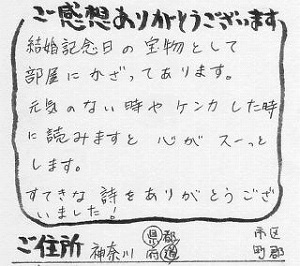 ご感想ありがとうございます
結婚記念日の宝物として
部屋にかざってあります。
元気のない時やケンカした時
に読みますと 心がスーっと
します。
すてきな詩をありがとうござ
いました!
ご住所 神奈川 県都府道 市区町郡